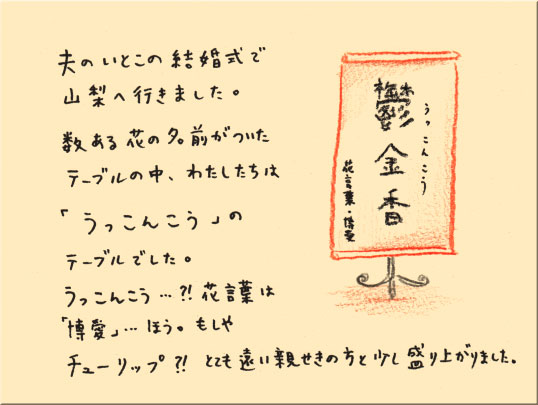 夫のいとこの結婚式で
山梨へ行きました。
数ある花の名前がついた
テーブルの中、わたしたちは
「うっこんこう」の
テーブルでした。
うっこんこう…?! 花言葉は
「博愛」… ほう。もしや
チューリップ?! とても遠い親せきの方と少し盛り上がりました。
うっこんこう
鬱金香
花言葉・博愛